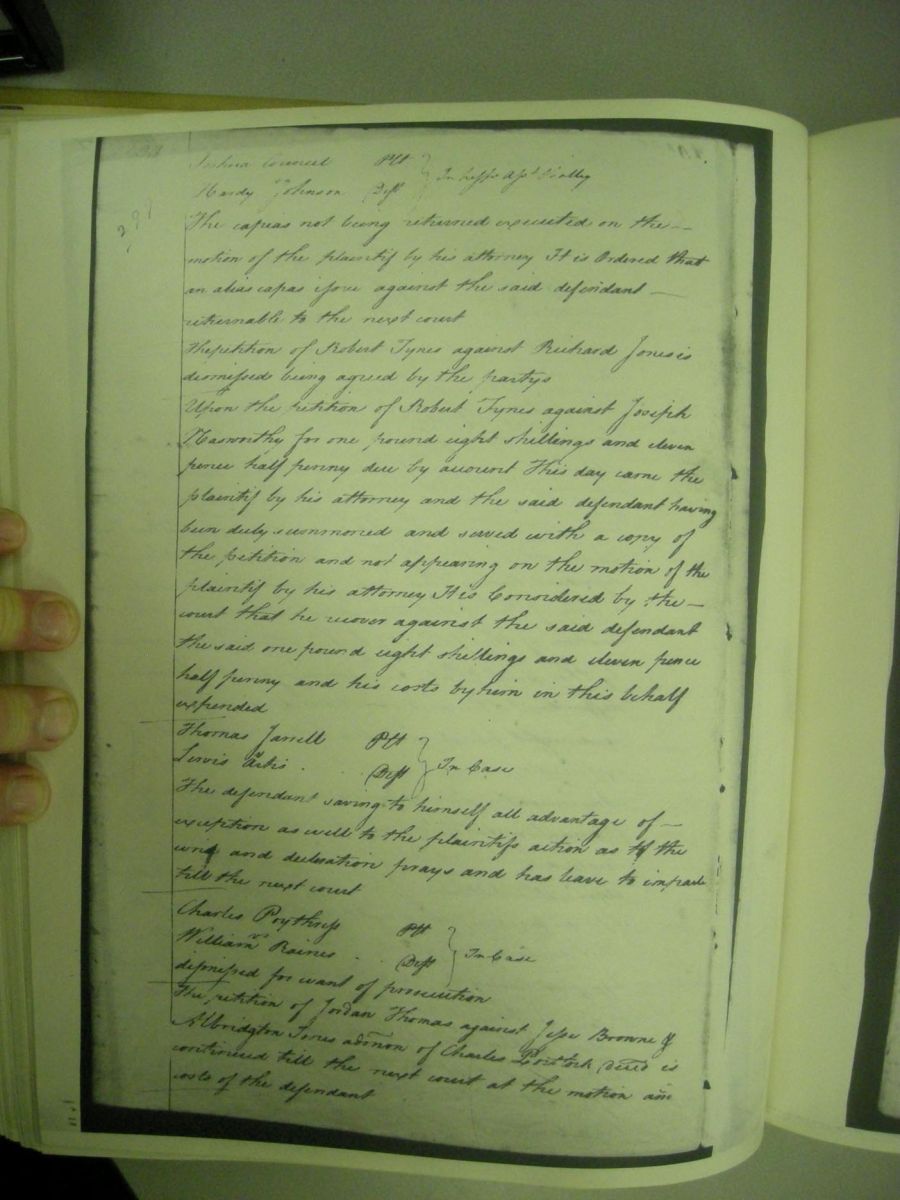 Joshua Council Plt
vs } In Trespss Asst & Battry
Hardy Johnson Deft
298
The capeas not being returned executed on the
motion of the plaintif by his attorney It is Ordered that
an alias capas issue against the said defendant
returnable to the next court
The petition of Robert Tynes against Richard Jones is
dismissed being agreed by the partys
Upon the petition of Robert Tynes against Joseph
Nasworthy for one pound eight shillings and eleven
pence half penny due by account This day came the
plaintif by his attorney and the said defendant having
been duly summoned and served with a copy of
the petition and not appearing on the motion of the
plaintif by his attorney It is Considered by the
court that he recover against the said defendant
the said one pound eight shillings and eleven pence
half penny and his costs by him in this behalf
expended
Thomas Jarrell Plt
vs } In Case
Lewis Artis Deft
The defendant saving to himself all advantage of
exception as well to the plaintifs action as to the
writ and declaration prays and has leave to imparle
till the next court
Charles Poythress Plt
vs } In Case
William Raines Deft
dismissed for want of prosecution
The petition of Jordan Thomas against Jesse Browne &
Albridgton Jones admon of Charles Portlock decd is
continued till the next court at the motion and
costs of the defendant